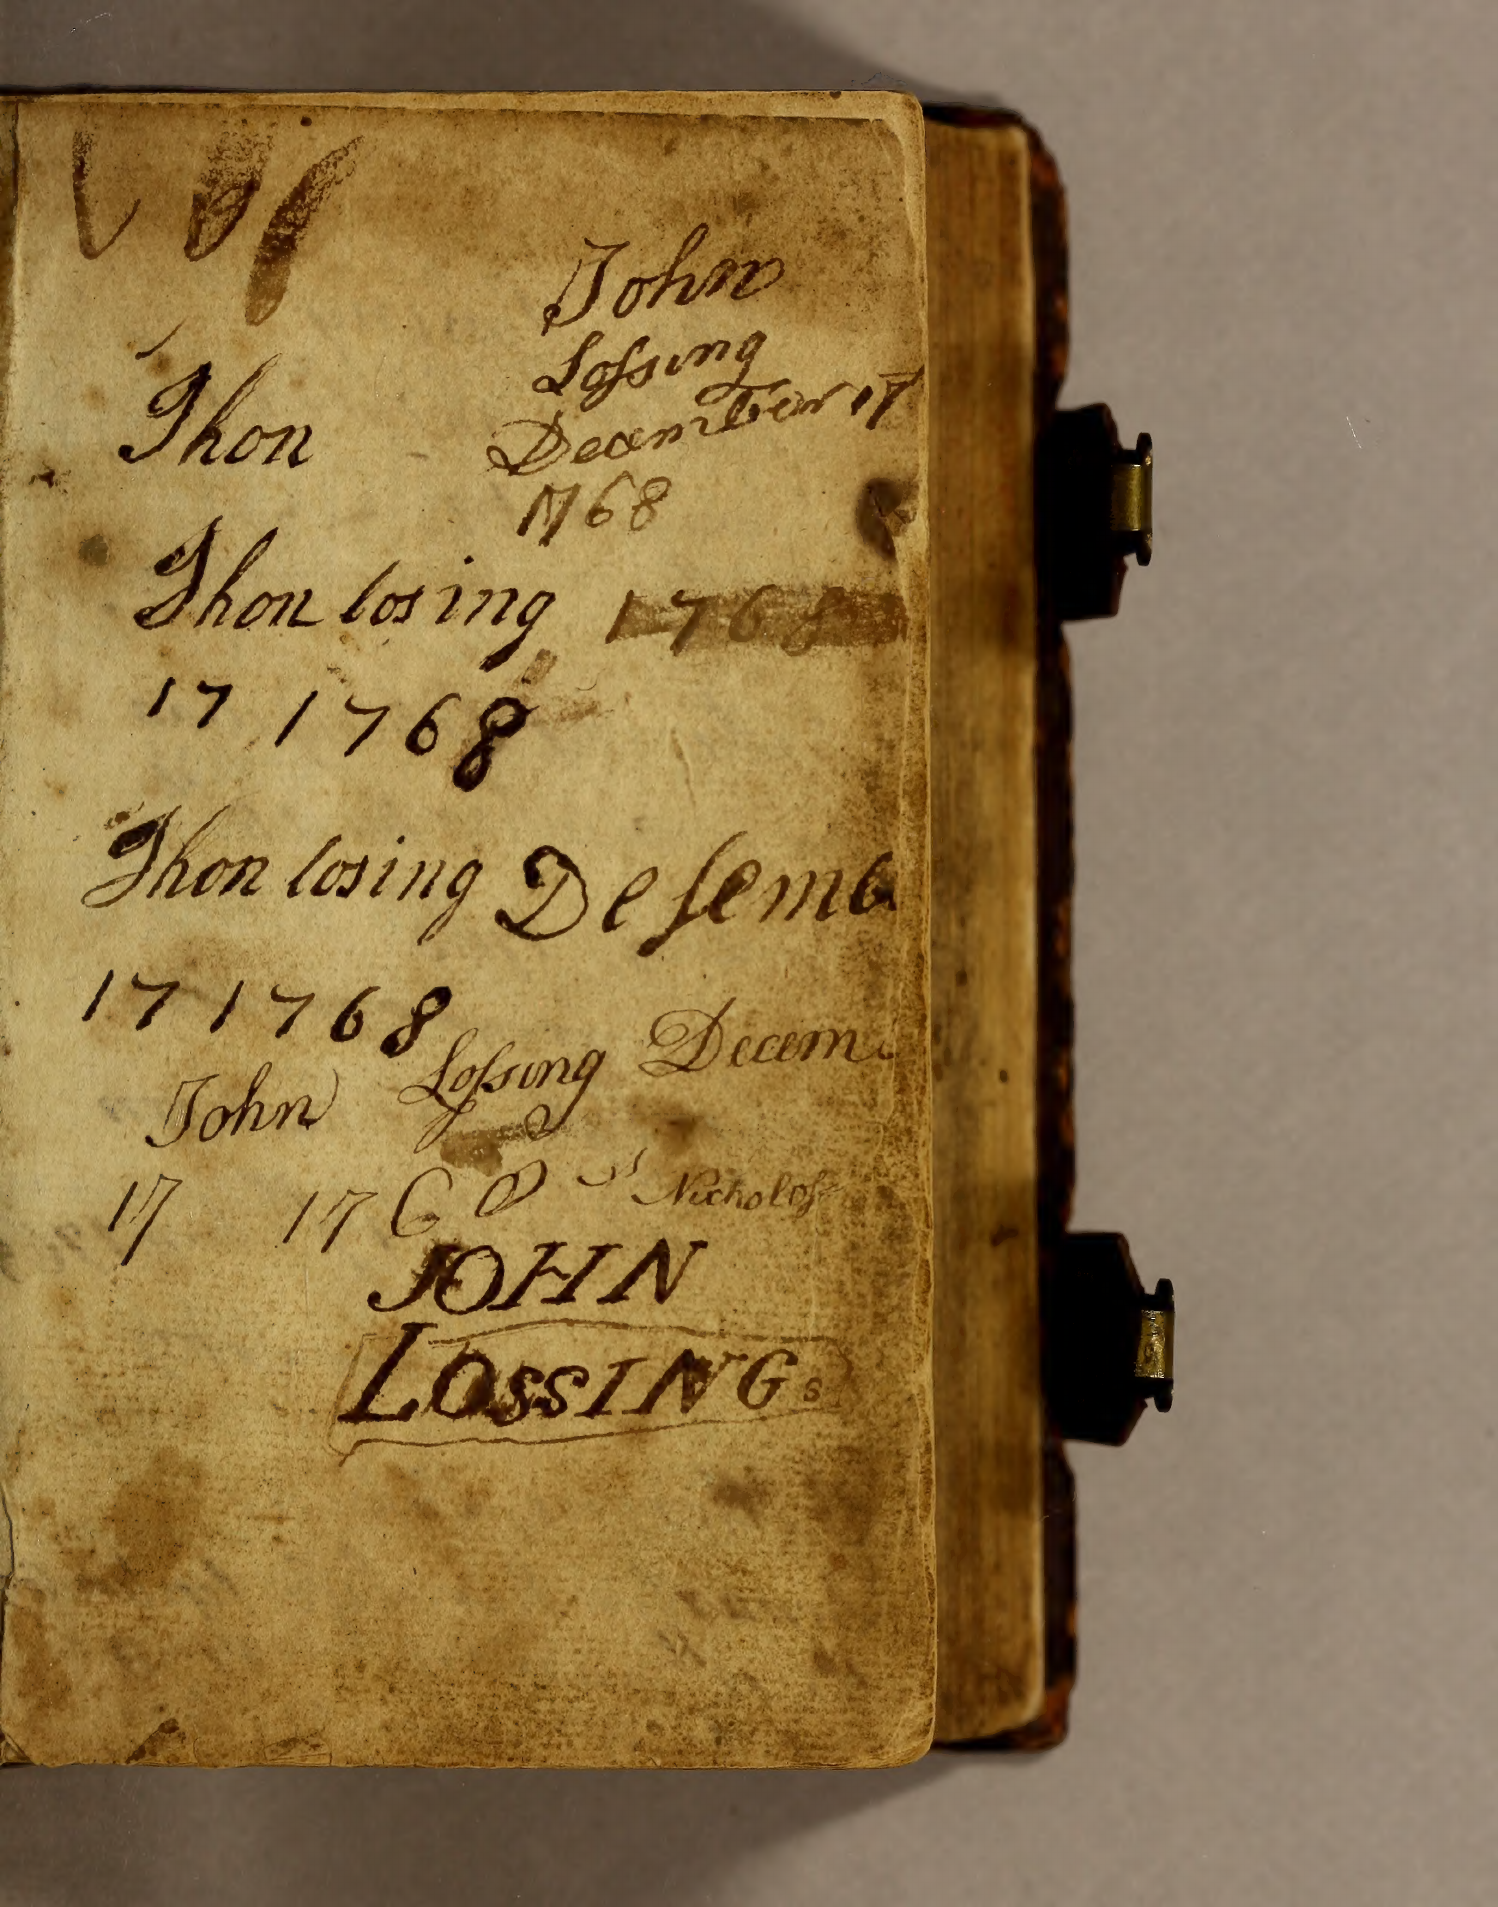 John
Lossing
December 17
1768
Jhon
Jhon losing 1768
17 1768
Jhon losing Desemb
17 1768
John Lossing Decem
17 1768 Nicholos
JOHN
LOSSING